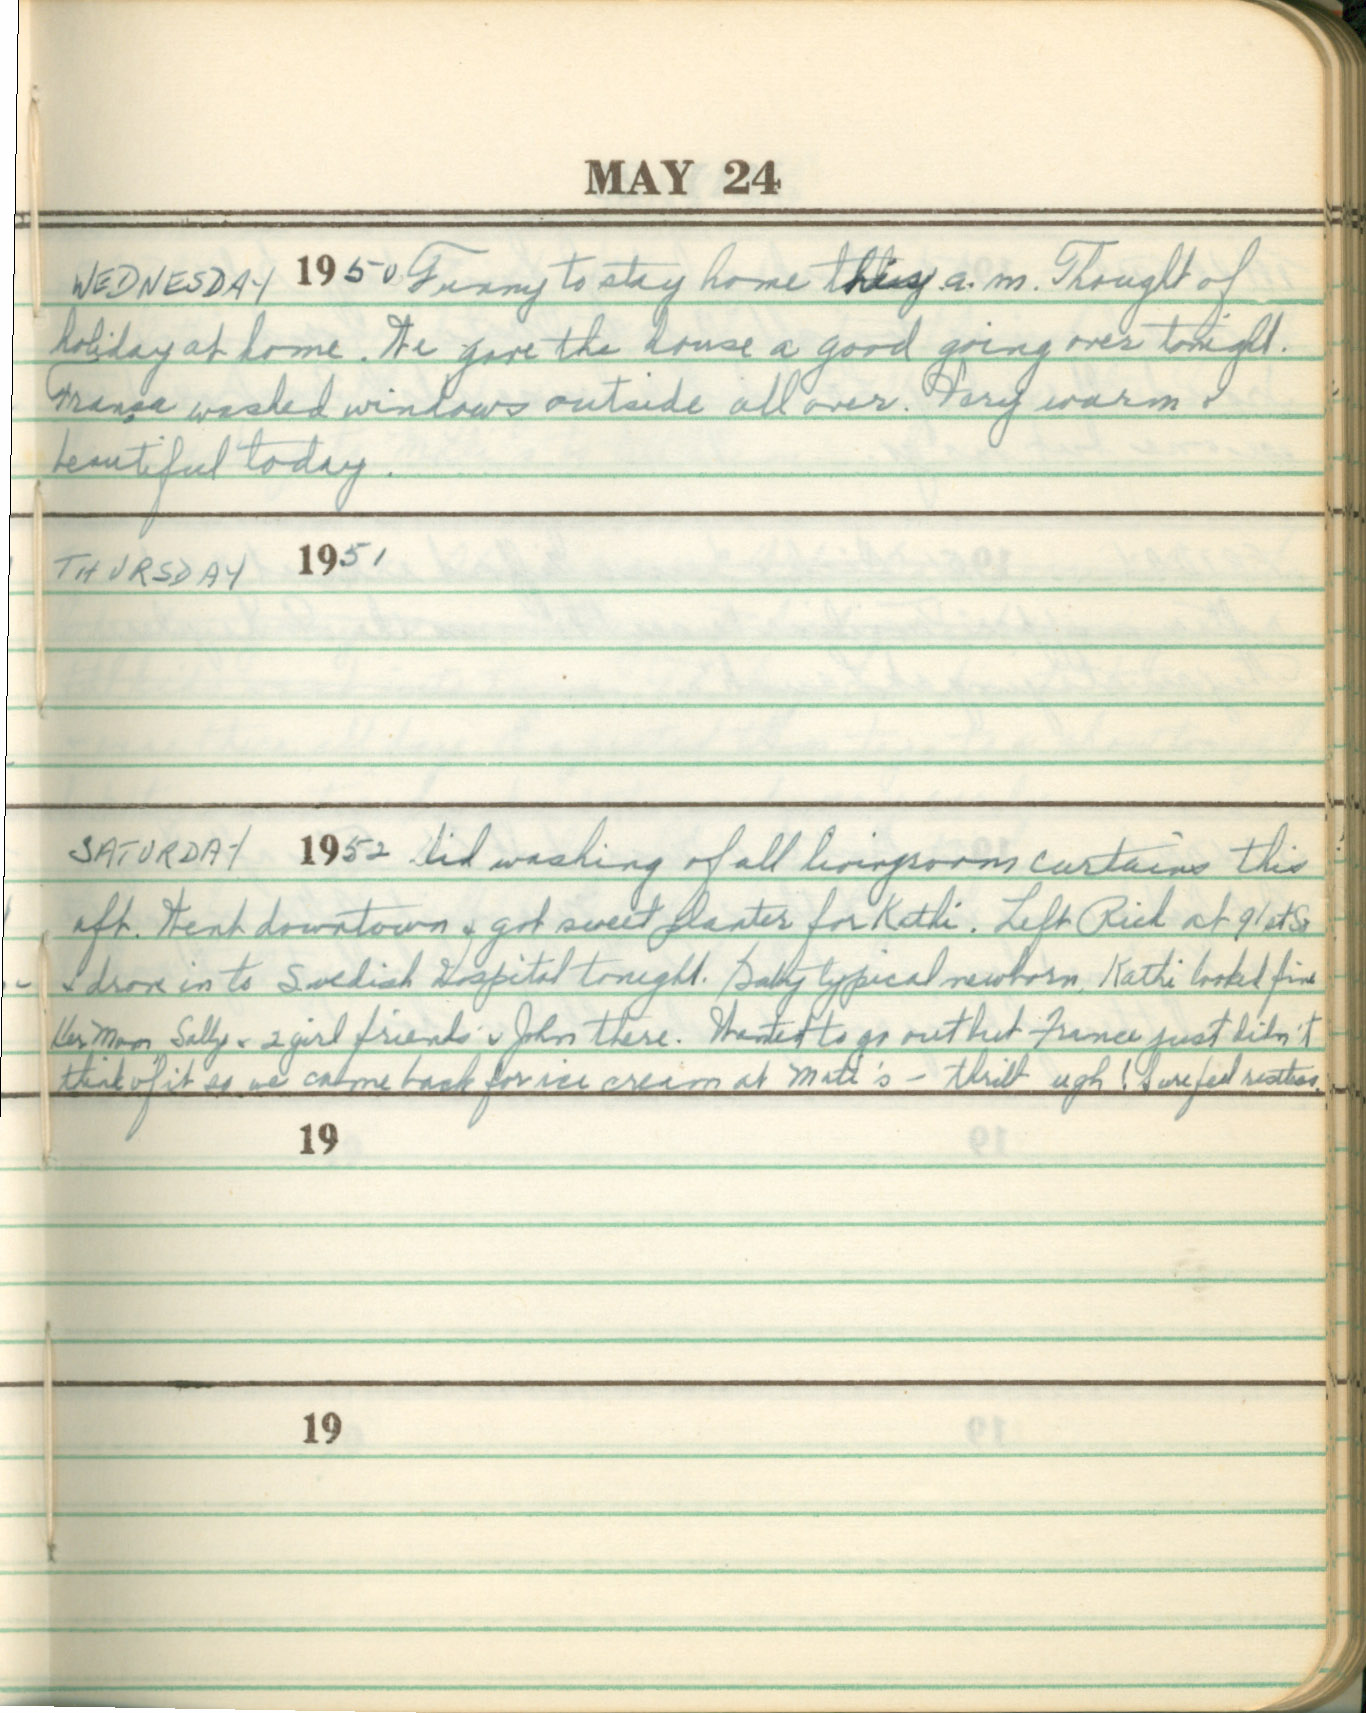 MAY 24
WEDNESDAY 1950 Funny to stay home this a.m. Thought of
holiday at home. We gave the house a good going over tonight.
France washed windows outside all over. Very warm &
beautiful today.
THURSDAY 1951
SATURDAY 1952 Did washing of all livingroom curtains this
aft. Went downtown & got sweet planter for Kathi. Left Rick at 91st St
& drove in to Swedish Hospital tonight. Baby typical newborn. Kathi looked fine
Her Mom Sally & 2 girl friends & John there. Wanted to go out but France just didn't
think of it so we came back for ice cream at Matt's - thrill ugh! Sure feel restless.
19
19